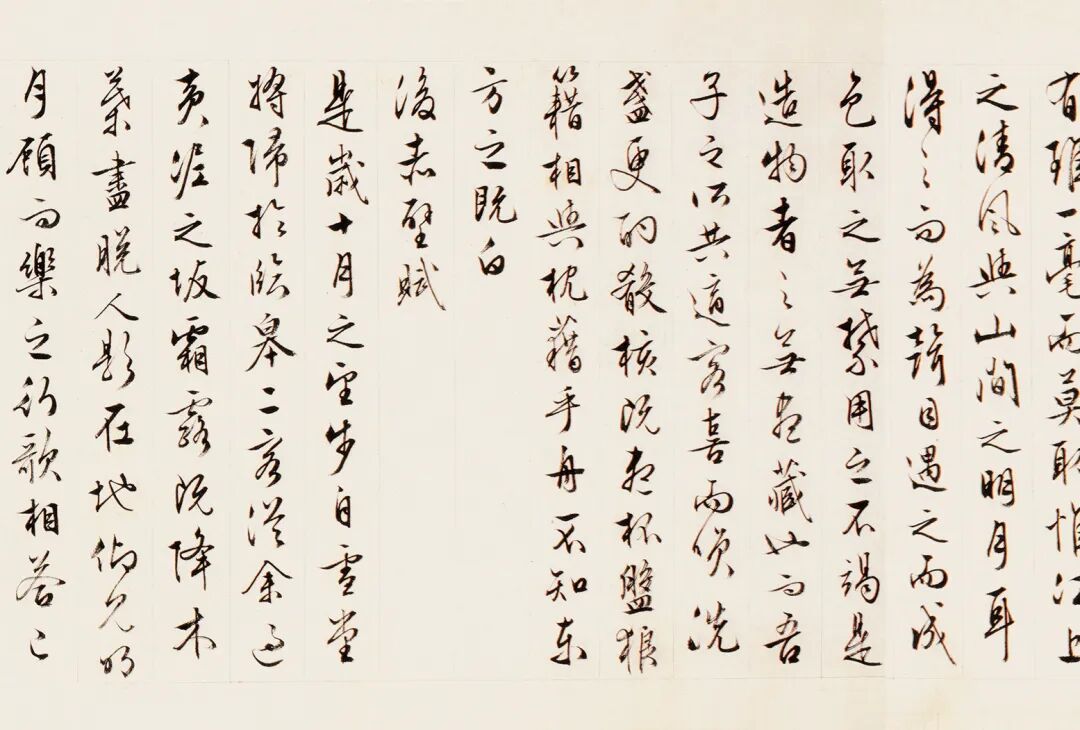 有雖一毫而莫取惟江上
之清風與山間之明月耳
得之而為聲目遇之而成
色取之無禁用之不竭是
造物者之無盡藏也而吾
子之所共適客喜而笑洗
盞更酌殽核既盡杯盤狼
籍相與枕藉乎舟不知東
方之既白
後赤壁賦
是歲十月之望步自雪堂
將歸於臨皋二客從余過
黃泥之坂霜露既降木
葉盡脫人影在地仰見明
月顧而樂之行歌相答已